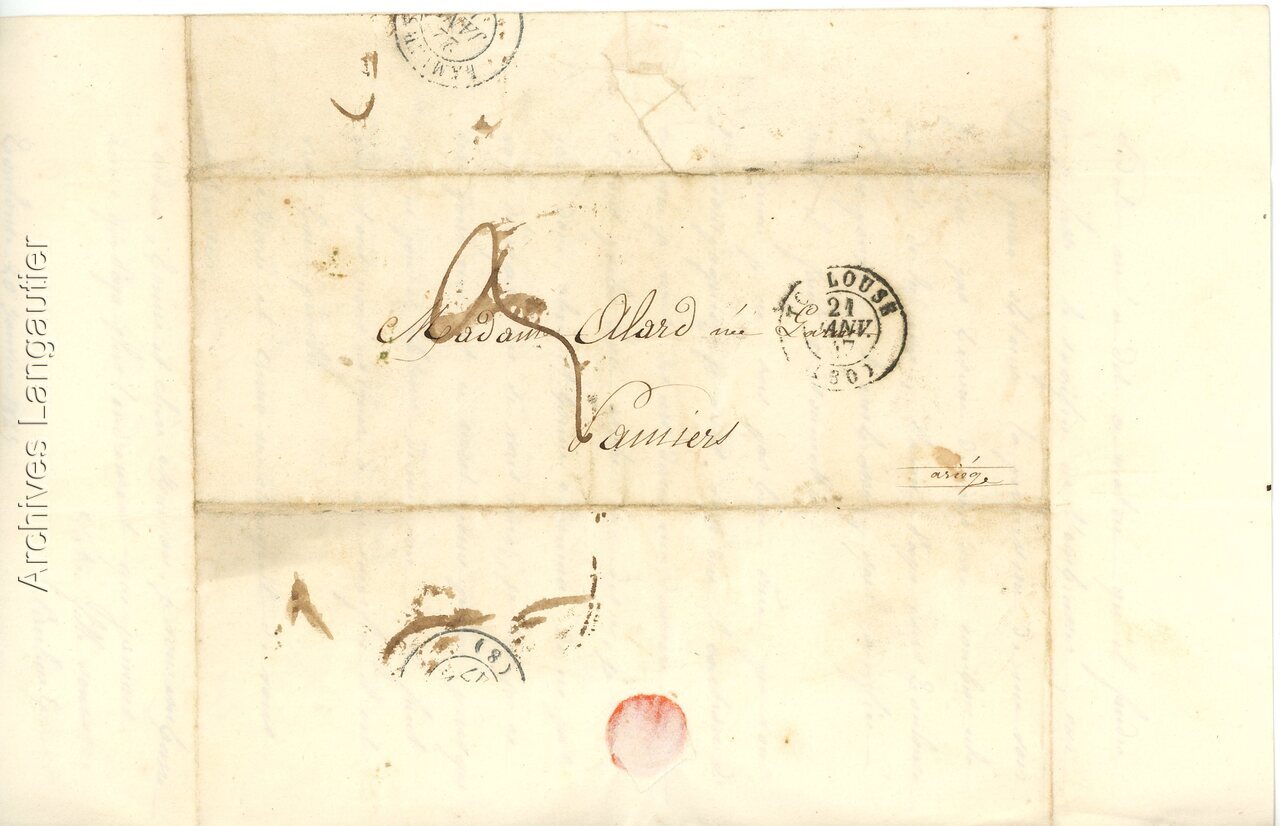 PAMIERS
JANV.
Madame Alard née
Pamiers
ariège
TOULOUSE
21
JANV.
47
(30)
(8)
47
Archives Langautier